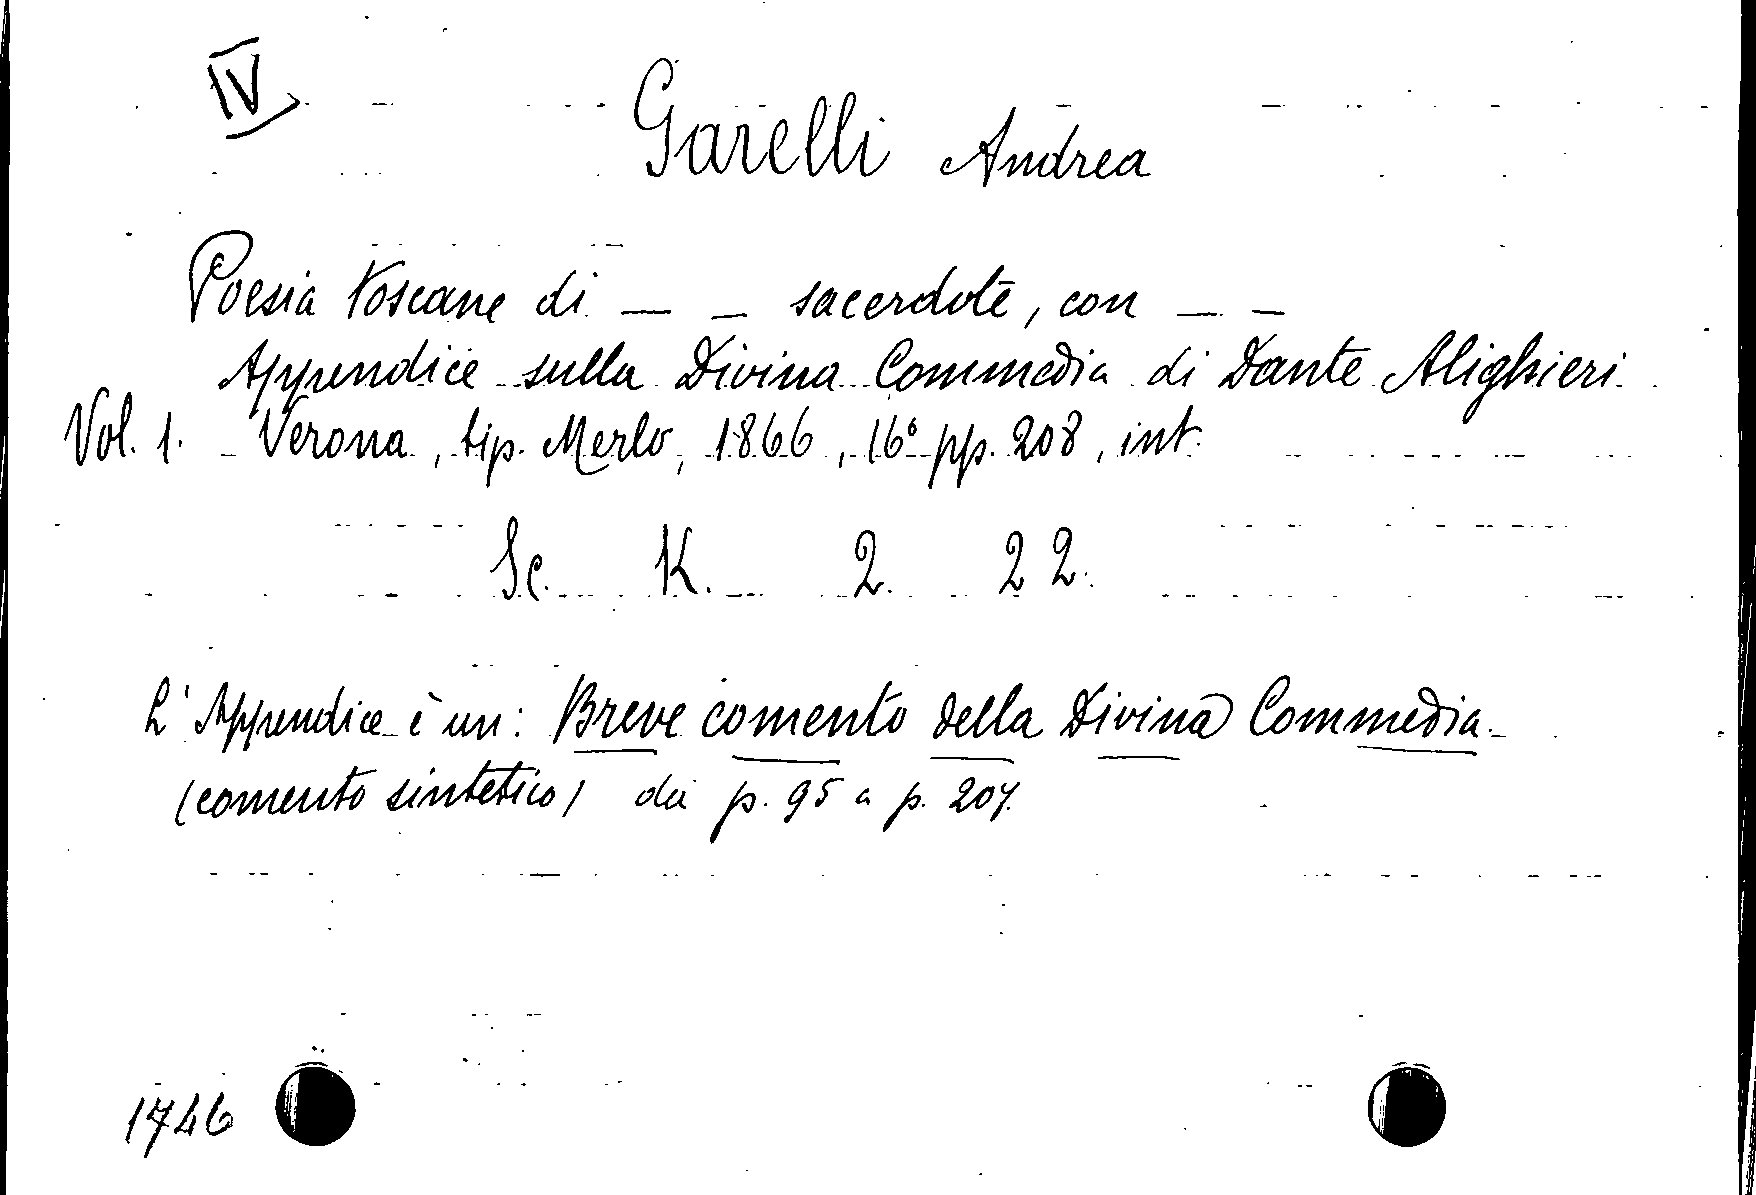 IV
Garelli Andrea
Poesia toscane di _ _ sacerdote, con _ _
Appendice sulla Divina Commedia di Dante Alighieri
Vol. 1. Verona, tip. Merlo, 1866, 16° pp. 208, int.
Sc. K. 2. 22.
L'Appendice è un: Breve comento della Divina Commedia
(comento sintetico) da p. 95 a p. 207.
1746